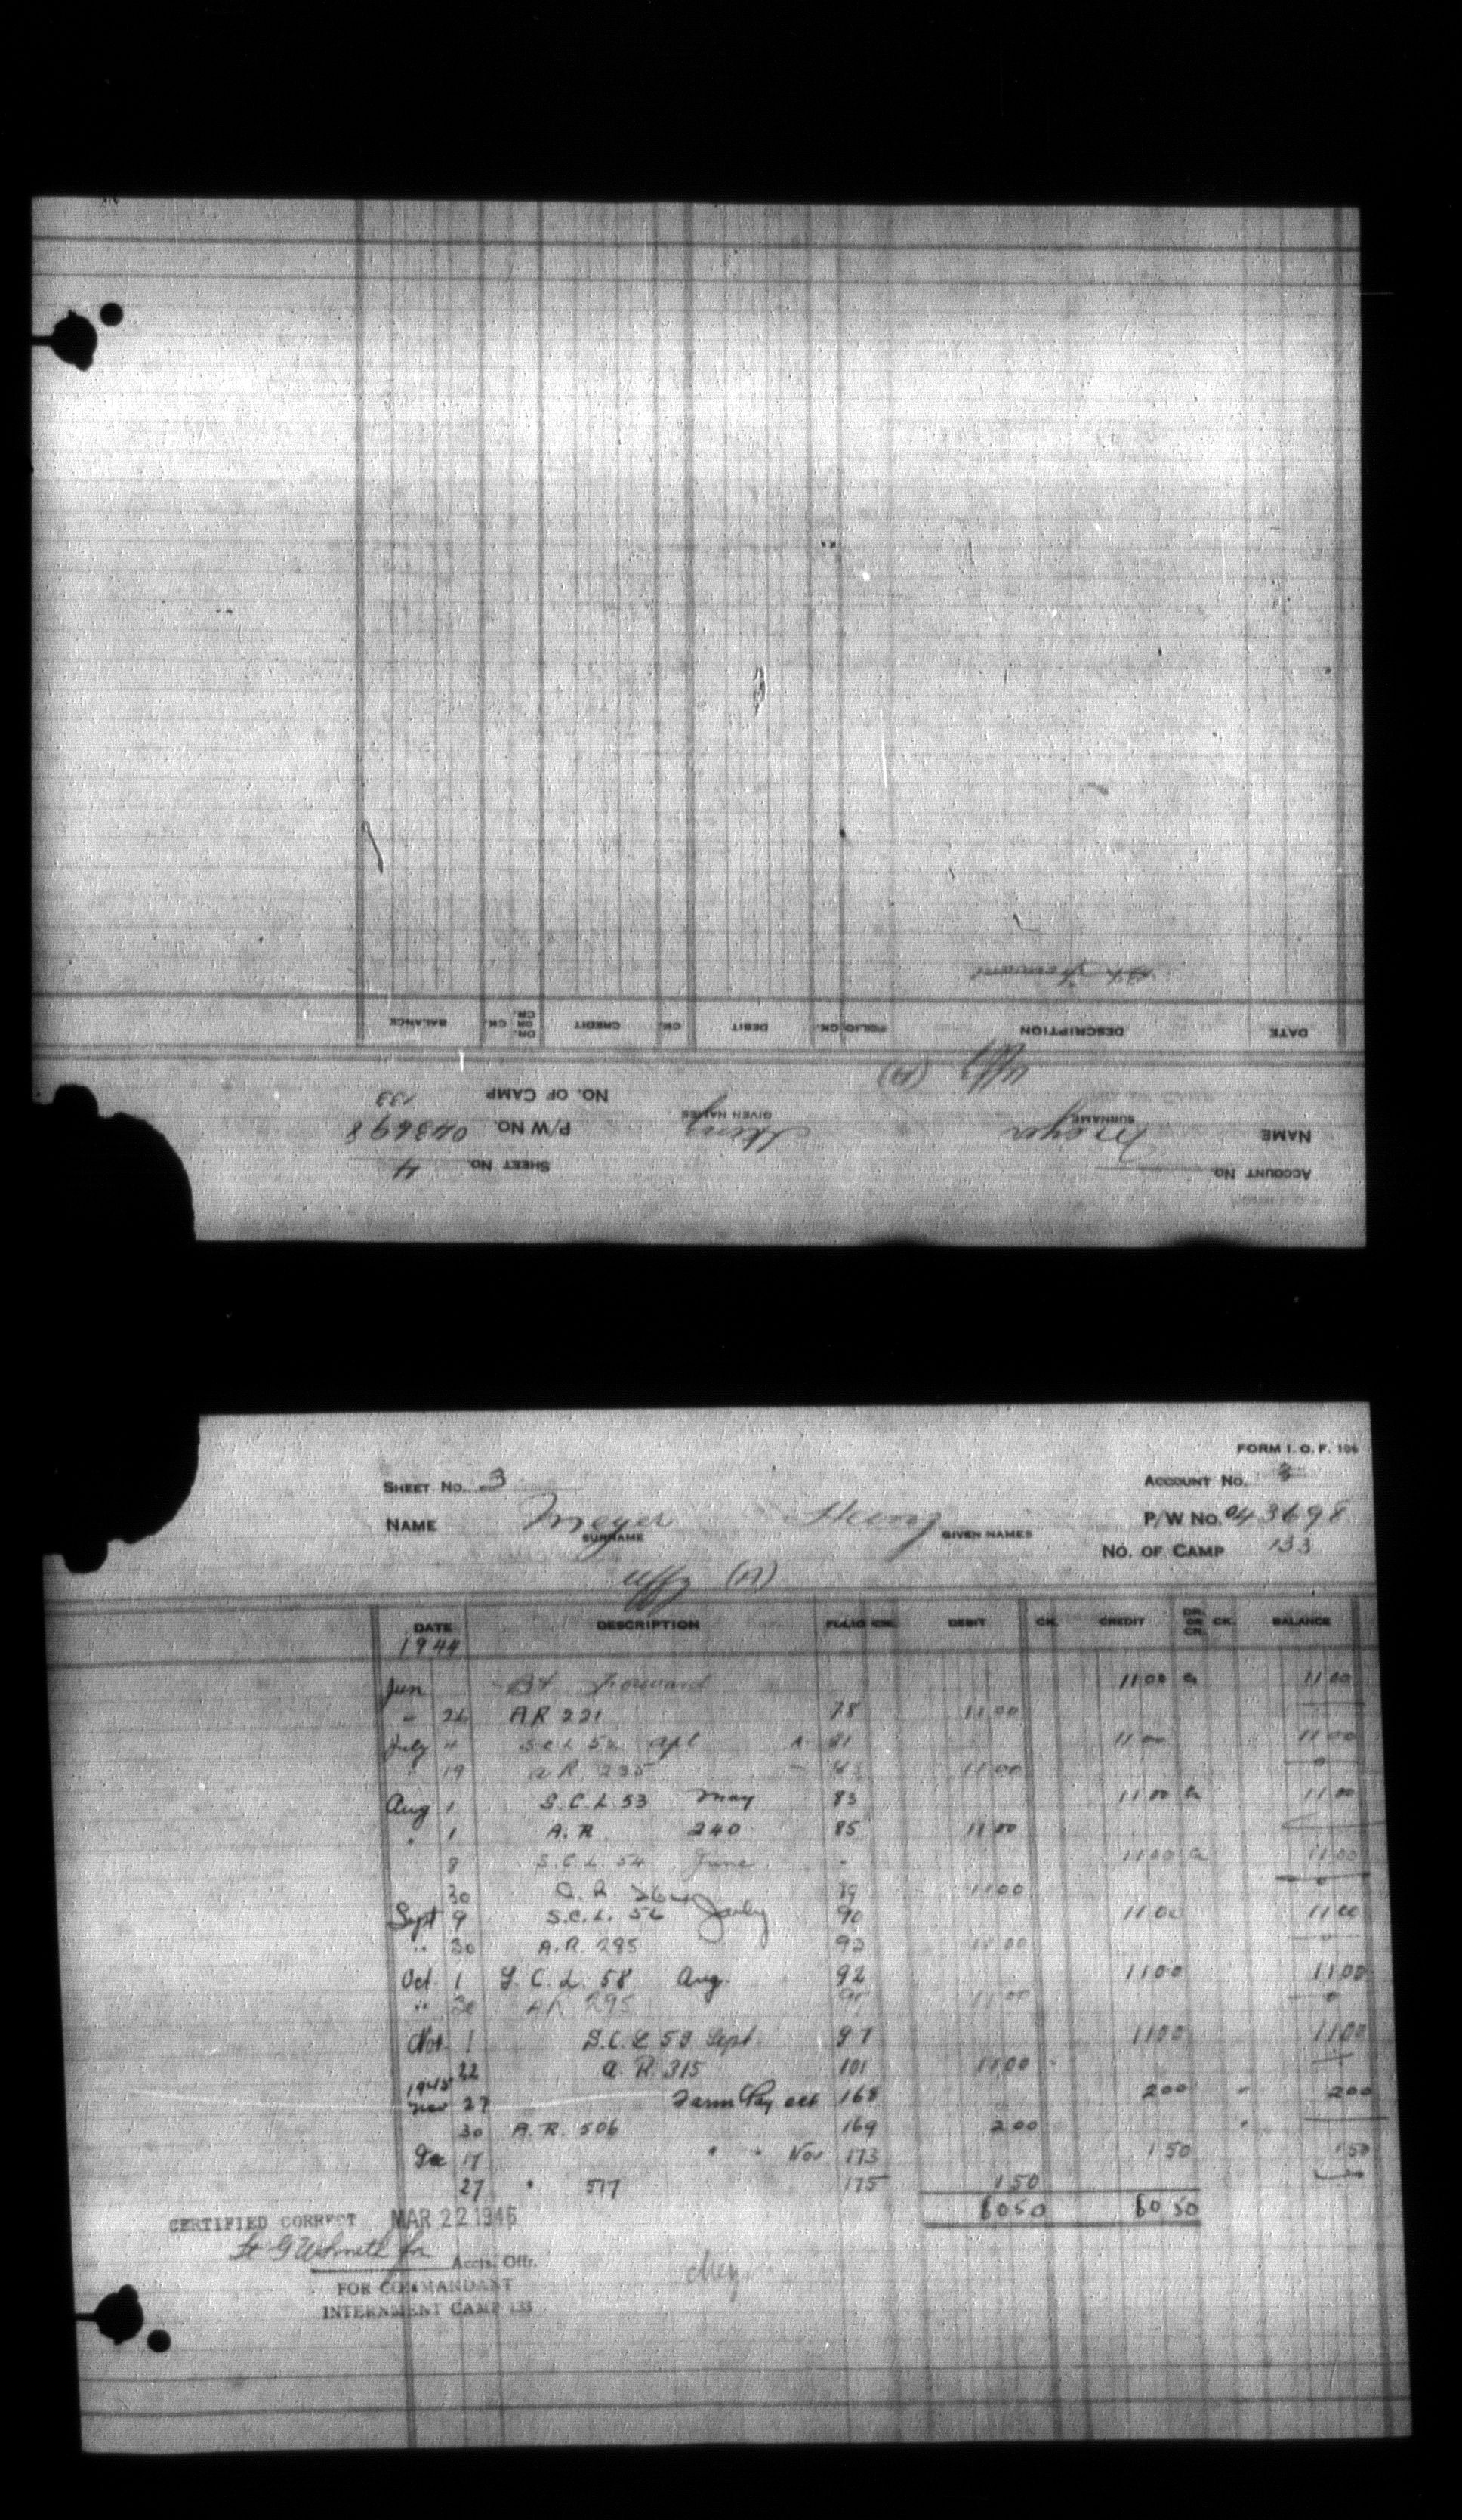 FORM I. O. F. 106
ACCOUNT NO.
SHEET NO. 4
NAME Meyer Heinz P/W NO. 043698
SURNAME GIVEN NAMES
NO. OF CAMP 133
Uffz (A)
DATE DESCRIPTION FOLIO CK. DEBIT CK. CREDIT DR. OR CR. CK. BALANCE
Bt Forward
FORM I. O. F. 106
SHEET NO. 3 ACCOUNT NO.
NAME Meyer Heinz P/W NO. 043698
SURNAME GIVEN NAMES
NO. OF CAMP 133
Uffz (A)
DATE DESCRIPTION FOLIO CK. DEBIT CK. CREDIT DR. OR CR. CK. BALANCE
1944
Jun Bt Forward 11 00 11 00
" 26 A R 221 78 11 00
July 4 S C L 52 Apl 81 11 00 11 00
19 A R 235 11 00 0
Aug 1 S.C.L 53 May 83 11 00 11 00
" 1 A.R 240 85 11 00
8 S.C.L. 54 June 11 00 11 00
30 A. R. 89 11 00 0
Sept 9 S.C.L. 56 July 90 11 00 11 00
" 30 A.R. 285 92 11 00
Oct. 1 S. C. L. 58 Aug. 92 11 00 11 00
" 30 AR 295 11 00 0
Nov. 1 S.C.L 59 Sept. 97 11 00 11 00
22 A. R. 315 101 11 00
1945
Nov 27 Farm Pay acct 168 2 00 2 00
30 A. R. 506 169 2 00
De 17 " " Nov 173 1 50 1 50
27 " 517 175 1 50
80 50 80 50
CERTIFIED CORRECT MAR 22 1946
Accts. Offr.
FOR COMMANDANT
INTERNMENT CAMP 133